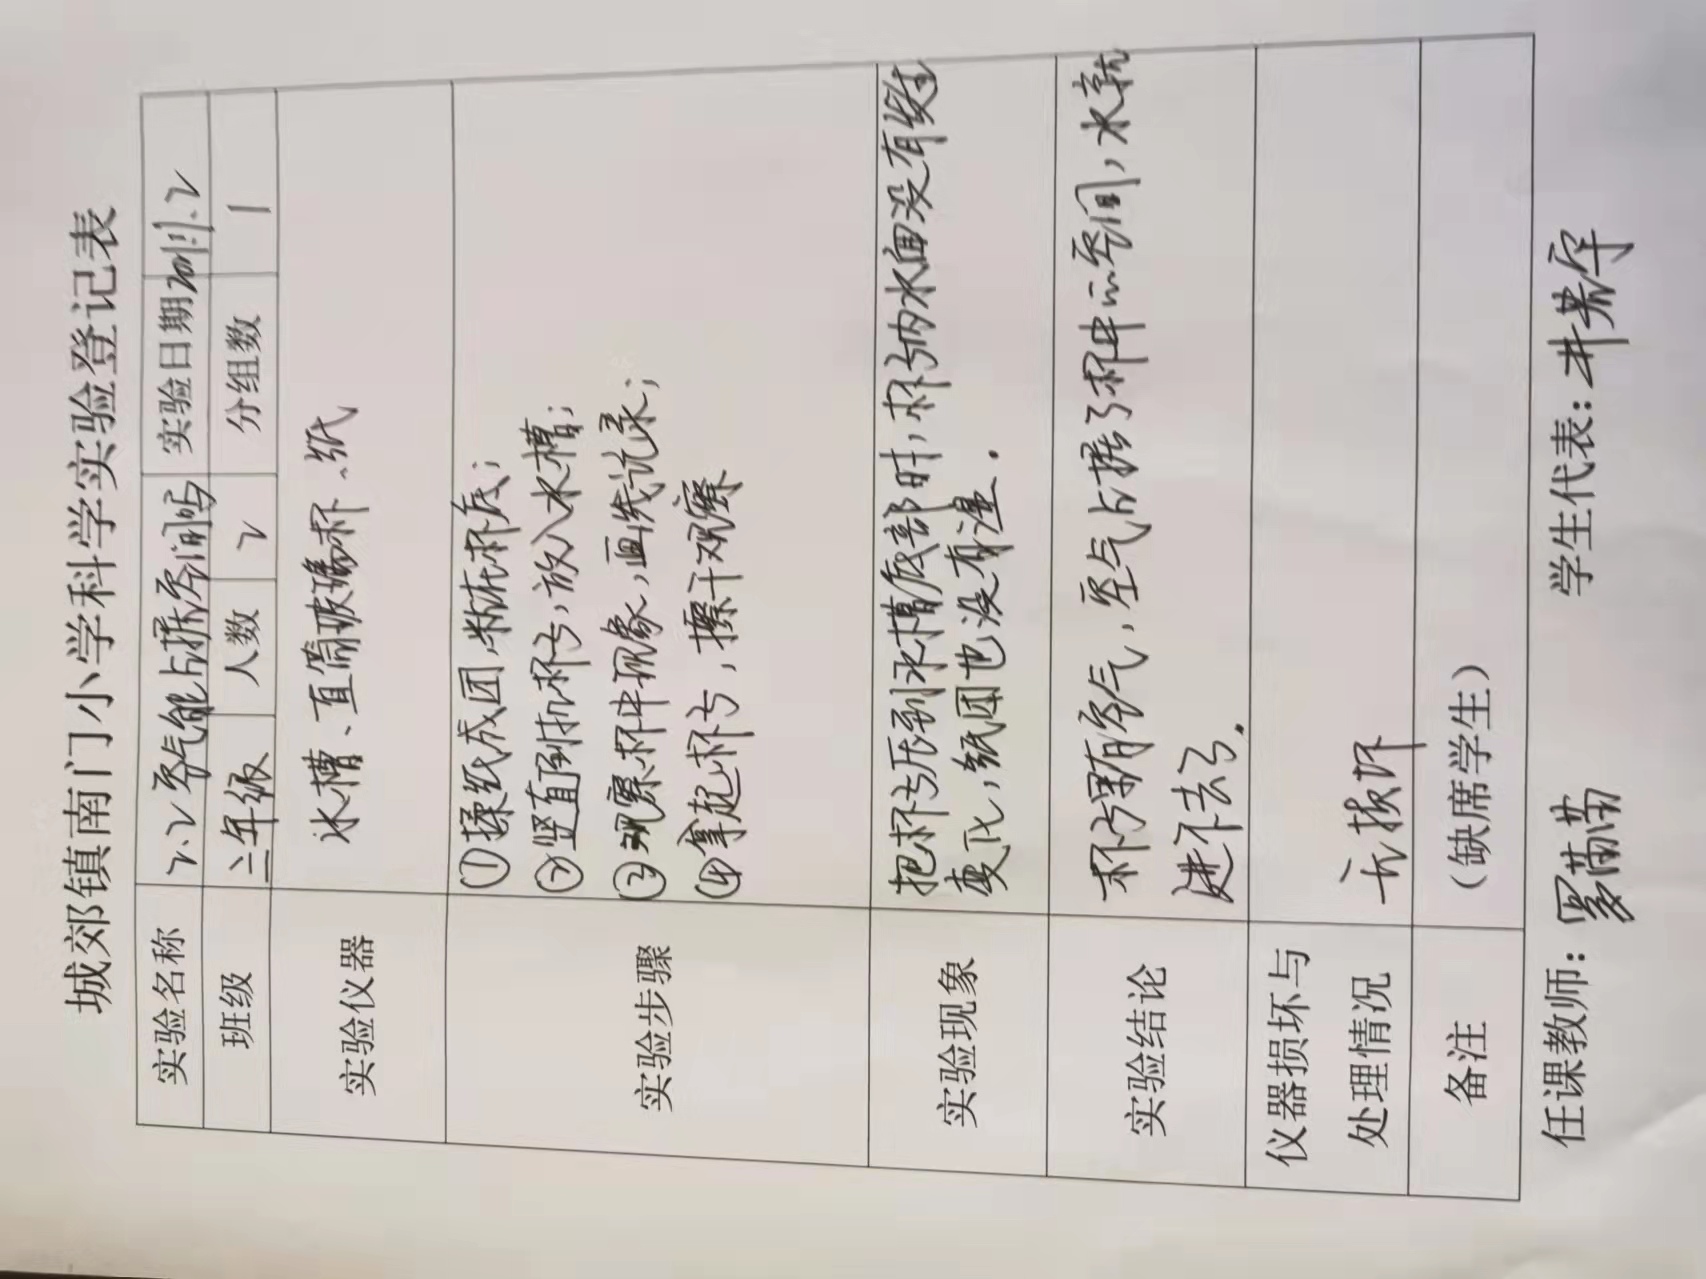 城郊镇南门小学科学实验登记表
实验名称 2.2 空气能占据空间吗 实验日期
班级 三年级 人数 2 分组数 1
实验仪器 水槽、直筒玻璃杯、纸
实验步骤 ①揉纸成团,粘在杯底;
②竖直倒扣杯子,放入水槽;
③观察杯中现象,画线记录;
④拿起杯子,擦干观察
实验现象 把杯子压到水槽底部时,杯子内水面没有发生
变化,纸团也没有湿.
实验结论 杯子里有空气,空气占据了杯中的空间,水就
进不去了.
仪器损坏与
处理情况 无损坏
备注 (缺席学生)
任课教师: 学生代表: